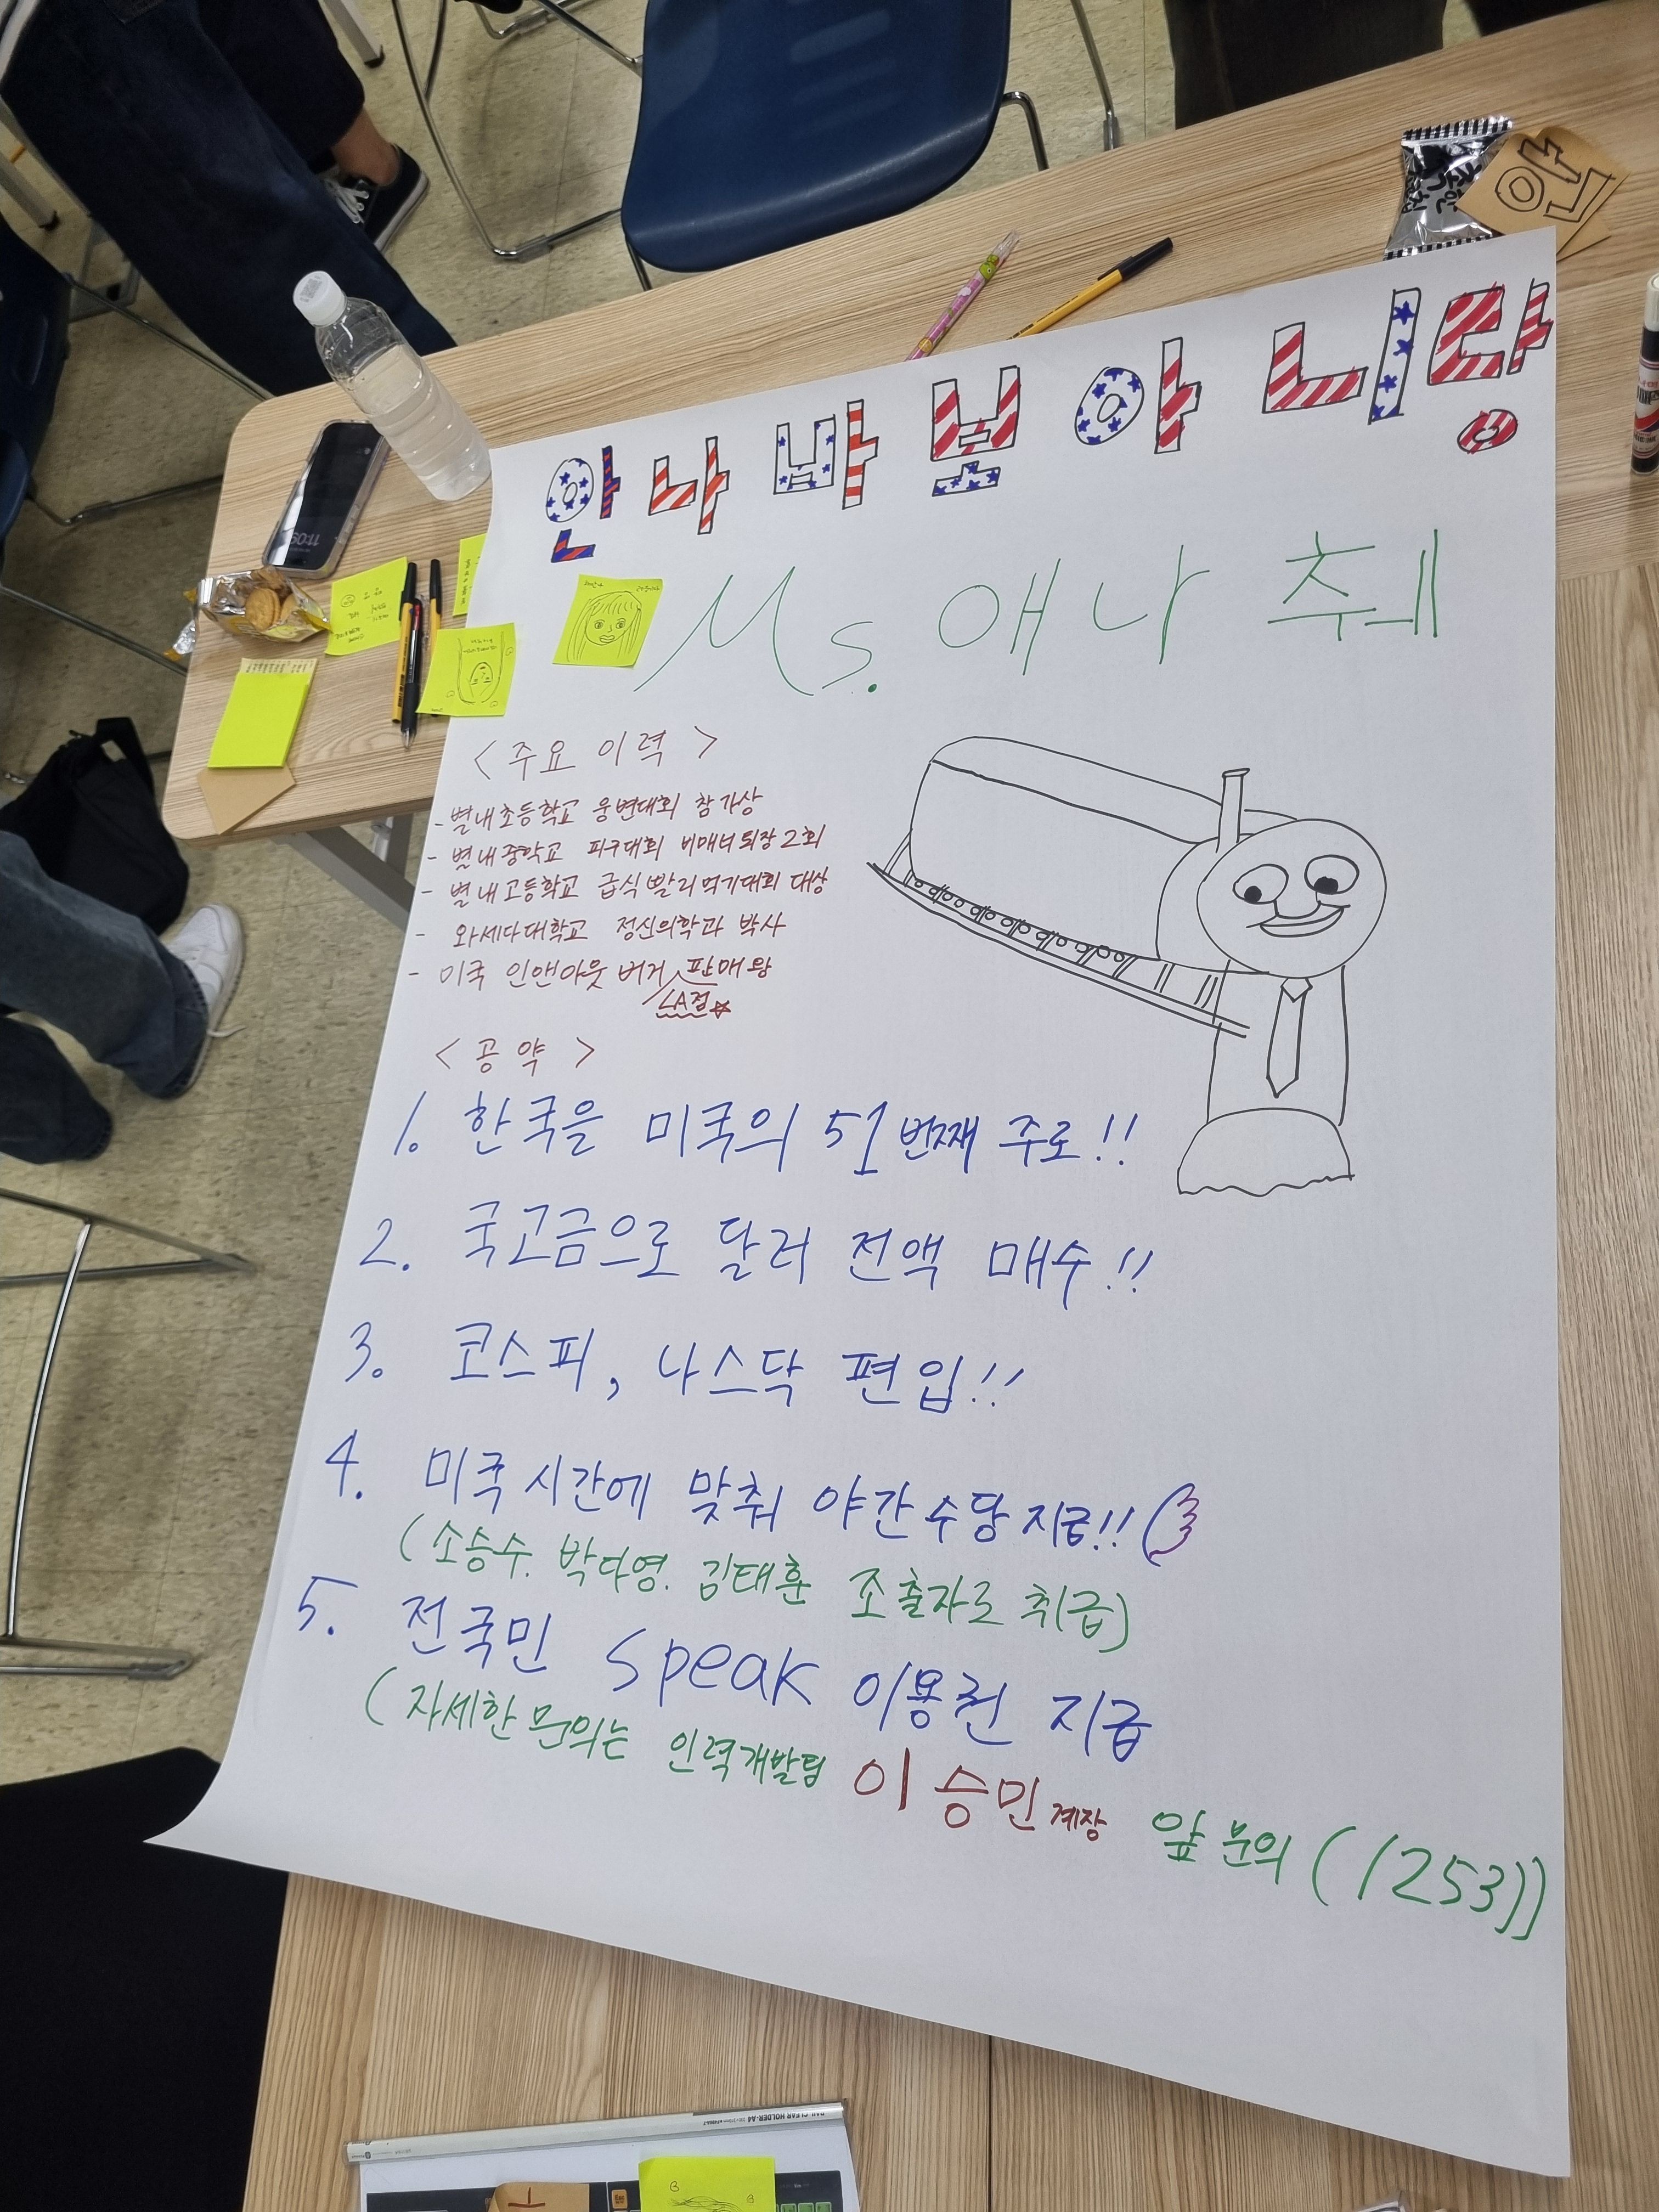 안 나 바 봄 아 니 랑
Ms. 애나 춰
< 주요 이력 >
- 별내초등학교 웅변대회 참가상
- 별내중학교 피구대회 비매너 퇴장 2회
- 별내고등학교 급식 빨리 먹기대회 대상
- 와세다대학교 정신의학과 박사
- 미국 인앤아웃 버거 판매왕
LA점
< 공약 >
1. 한국을 미국의 51번째 주로!!
2. 국고금으로 달러 전액 매수!!
3. 코스피, 나스닥 편입!!
4. 미국 시간에 맞춰 야간수당 지급!!
(소승수. 박다영. 김태훈 조출자로 취급)
5. 전국민 speak 이용권 지급
(자세한 문의는 인력개발팀 이승민 계장 앞 문의 (1253))
안
11:09